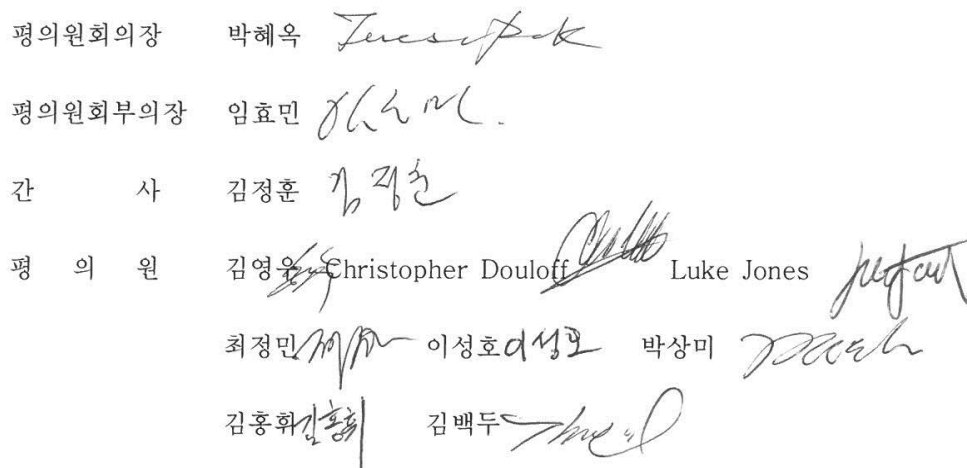 평의원회의장 박혜옥
평의원회부의장 임효민
간 사 김정훈 김정훈
평 의 원 김영웅 Christopher Douloff Luke Jones
최정민 이성호 이성호 박상미
김홍휘 김홍휘 김백두